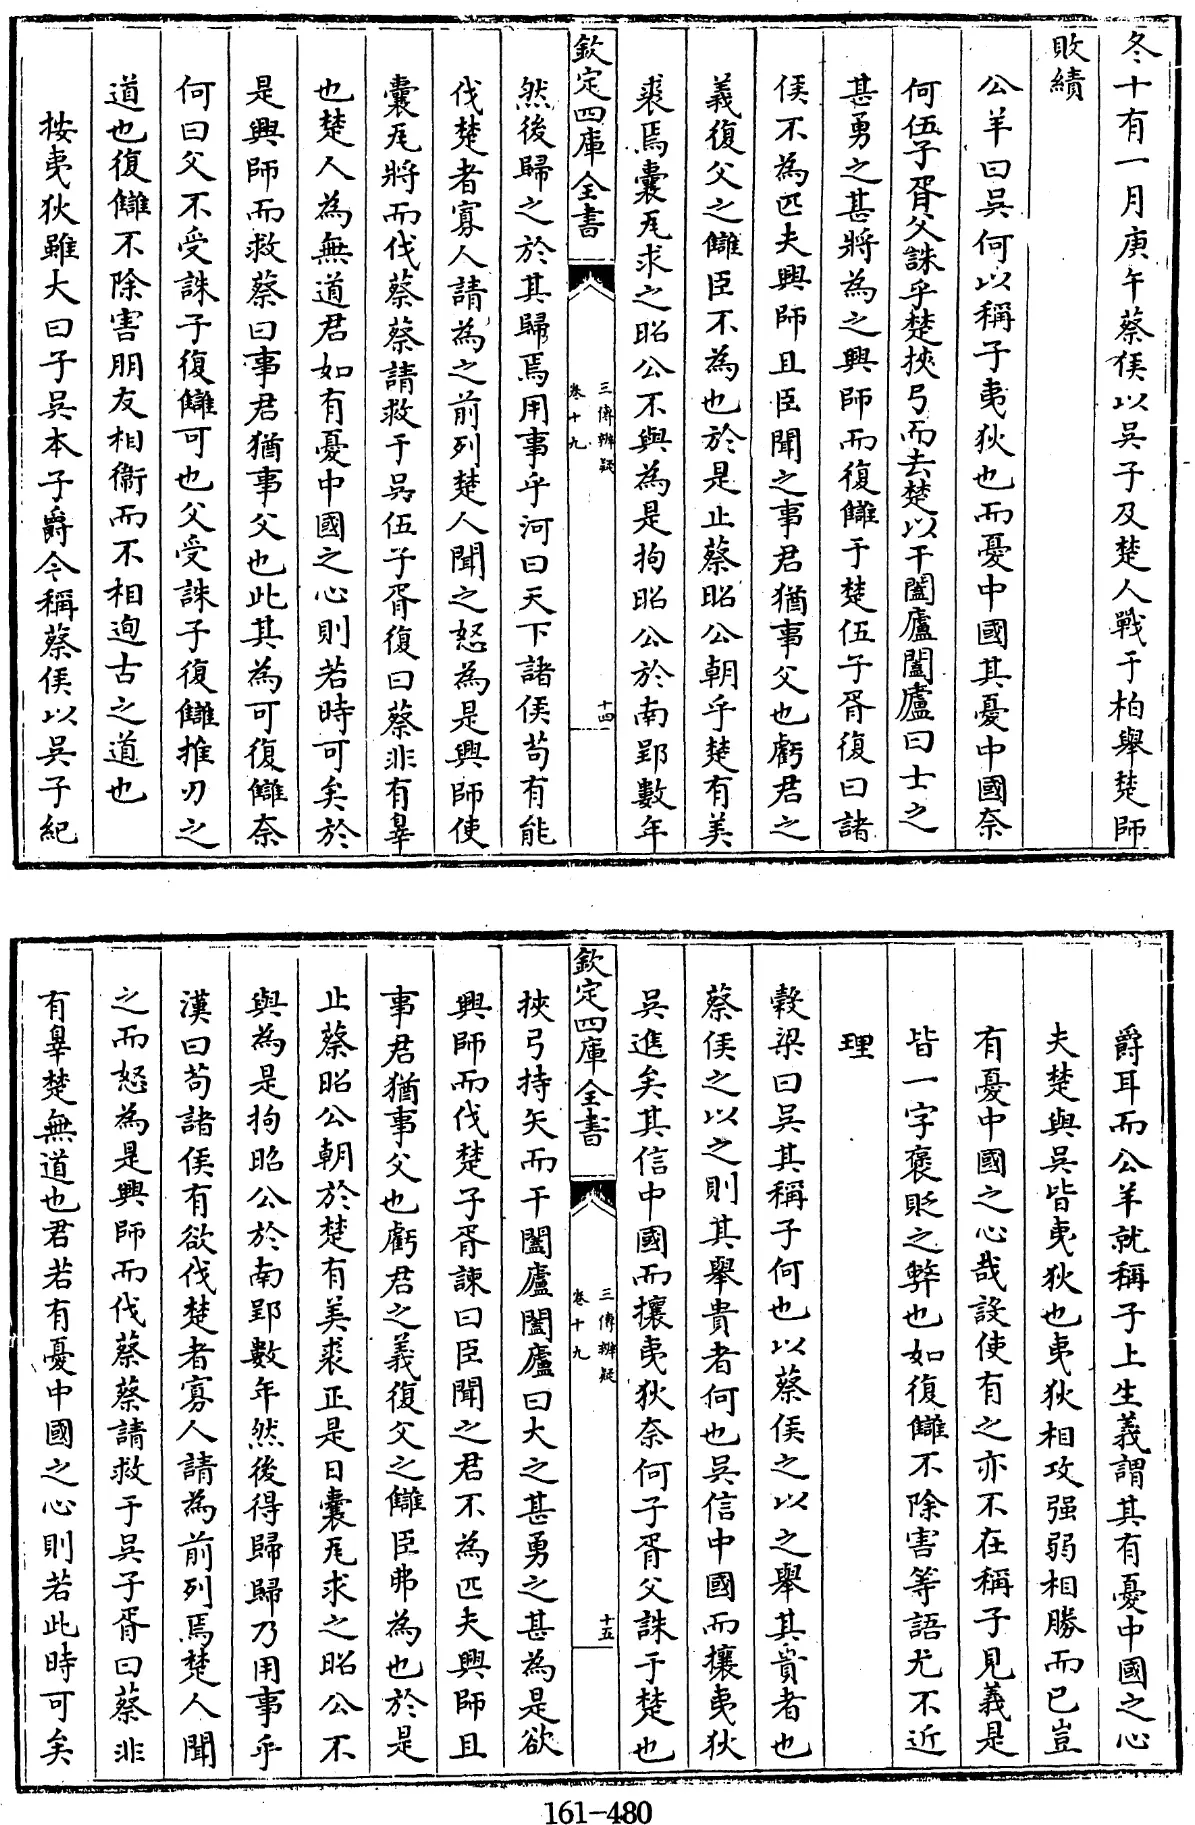 冬十有一月庚午蔡侯以吳子及楚人戰于柏舉楚師
敗績
公羊曰吳何以稱子夷狄也而憂中國其憂中國奈
何伍子胥父誅乎楚挾弓而去楚以干闔廬闔廬曰士之
甚勇之甚將為之興師而復讎于楚伍子胥復曰諸
侯不為匹夫興師且臣聞之事君猶事父也虧君之
義復父之讎臣不為也於是止蔡昭公朝乎楚有美
裘焉囊瓦求之昭公不與為是拘昭公於南郢數年
欽定四庫全書
三傳辨疑
卷十九
十四
然後歸之於其歸焉用事乎河曰天下諸侯苟有能
伐楚者寡人請為之前列楚人聞之怒為是興師使
囊瓦將而伐蔡蔡請救于吳伍子胥復曰蔡非有辠
也楚人為無道君如有憂中國之心則若時可矣於
是興師而救蔡曰事君猶事父也此其為可復讎奈
何曰父不受誅子復讎可也父受誅子復讎推刃之
道也復讎不除害朋友相衞而不相迿古之道也
按夷狄雖大曰子吳本子爵今稱蔡侯以吳子紀
爵耳而公羊就稱子上生義謂其有憂中國之心
夫楚與吳皆夷狄也夷狄相攻强弱相勝而已豈
有憂中國之心哉設使有之亦不在稱子見義是
皆一字褒貶之弊也如復讎不除害等語尤不近
理
穀梁曰吳其稱子何也以蔡侯之以之舉其貴者也
蔡侯之以之則其舉貴者何也吳信中國而攘夷狄
吳進矣其信中國而攘夷狄奈何子胥父誅于楚也
欽定四庫全書
三傳辨疑
卷十九
十五
挾弓持矢而干闔廬闔廬曰大之甚勇之甚為是欲
興師而伐楚子胥諫曰臣聞之君不為匹夫興師且
事君猶事父也虧君之義復父之讎臣弗為也於是
止蔡昭公朝於楚有美裘正是日囊瓦求之昭公不
與為是拘昭公於南郢數年然後得歸歸乃用事乎
漢曰苟諸侯有欲伐楚者寡人請為前列焉楚人聞
之而怒為是興師而伐蔡蔡請救于吳子胥曰蔡非
有辠楚無道也君若有憂中國之心則若此時可矣
161-480